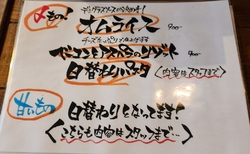 〆もの!
オムライス 900-
ベーコンとアスパラのリゾット 900-
日替わりパスタ (内容はスタッフまで)
甘いもの
日替わりとなってます!
(こちらも内容はスタッフまで…)